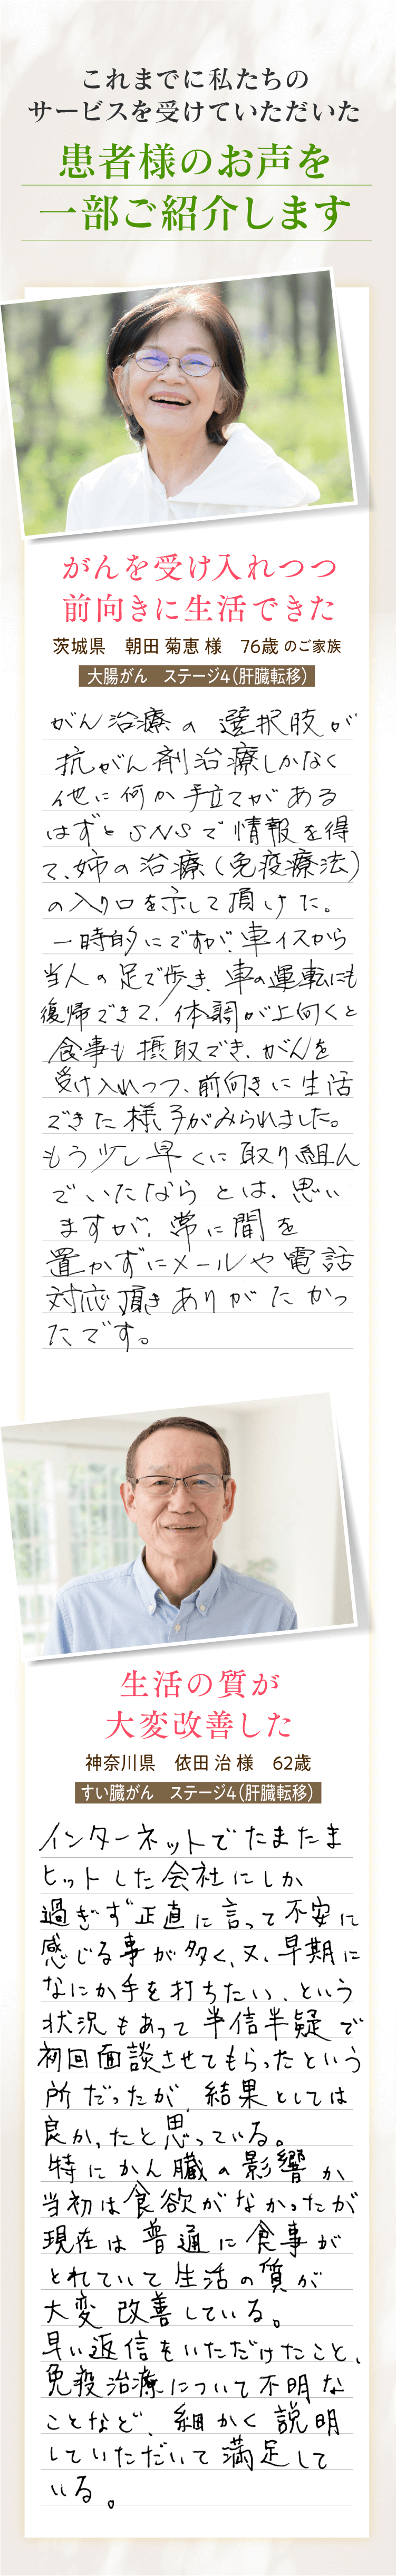 これまでに私たちの
サービスを受けていただいた
患者様のお声を
一部ご紹介します
がんを受け入れつつ
前向きに生活できた
茨城県　朝田 菊恵 様　76歳 のご家族
大腸がん　ステージ4（肝臓転移）
がん治療の選択肢が
抗がん剤治療しかなく
他に何か手立てがある
はずとSNSで情報を得
て、姉の治療（免疫療法）
の入り口を示して頂けた。
一時的にですが、車イスから
当人の足で歩き、車の運転にも
復帰できて、体調が上向くと
食事も摂取でき、がんを
受け入れつつ、前向きに生活
できた様子がみられました。
もう少し早くに取り組ん
でいたならとは、思い
ますが、常に間を
置かずにメールや電話
対応頂きありがたかっ
たです。
生活の質が
大変改善した
神奈川県　依田 治 様　62歳
すい臓がん　ステージ4（肝臓転移）
インターネットでたまたま
ヒットした会社にしか
過ぎず正直に言って不安に
感じる事が多く、又、早期に
なにか手を打ちたい、という
状況もあって半信半疑で
初回面談させてもらったという
所だったが、結果としては
良かったと思っている。
特にかん臓の影響か
当初は食欲がなかったが
現在は普通に食事が
とれていて生活の質が
大変改善している。
早い返信をいただけたこと、
免疫治療について不明な
ことなど、細かく説明
していただいて満足して
いる。